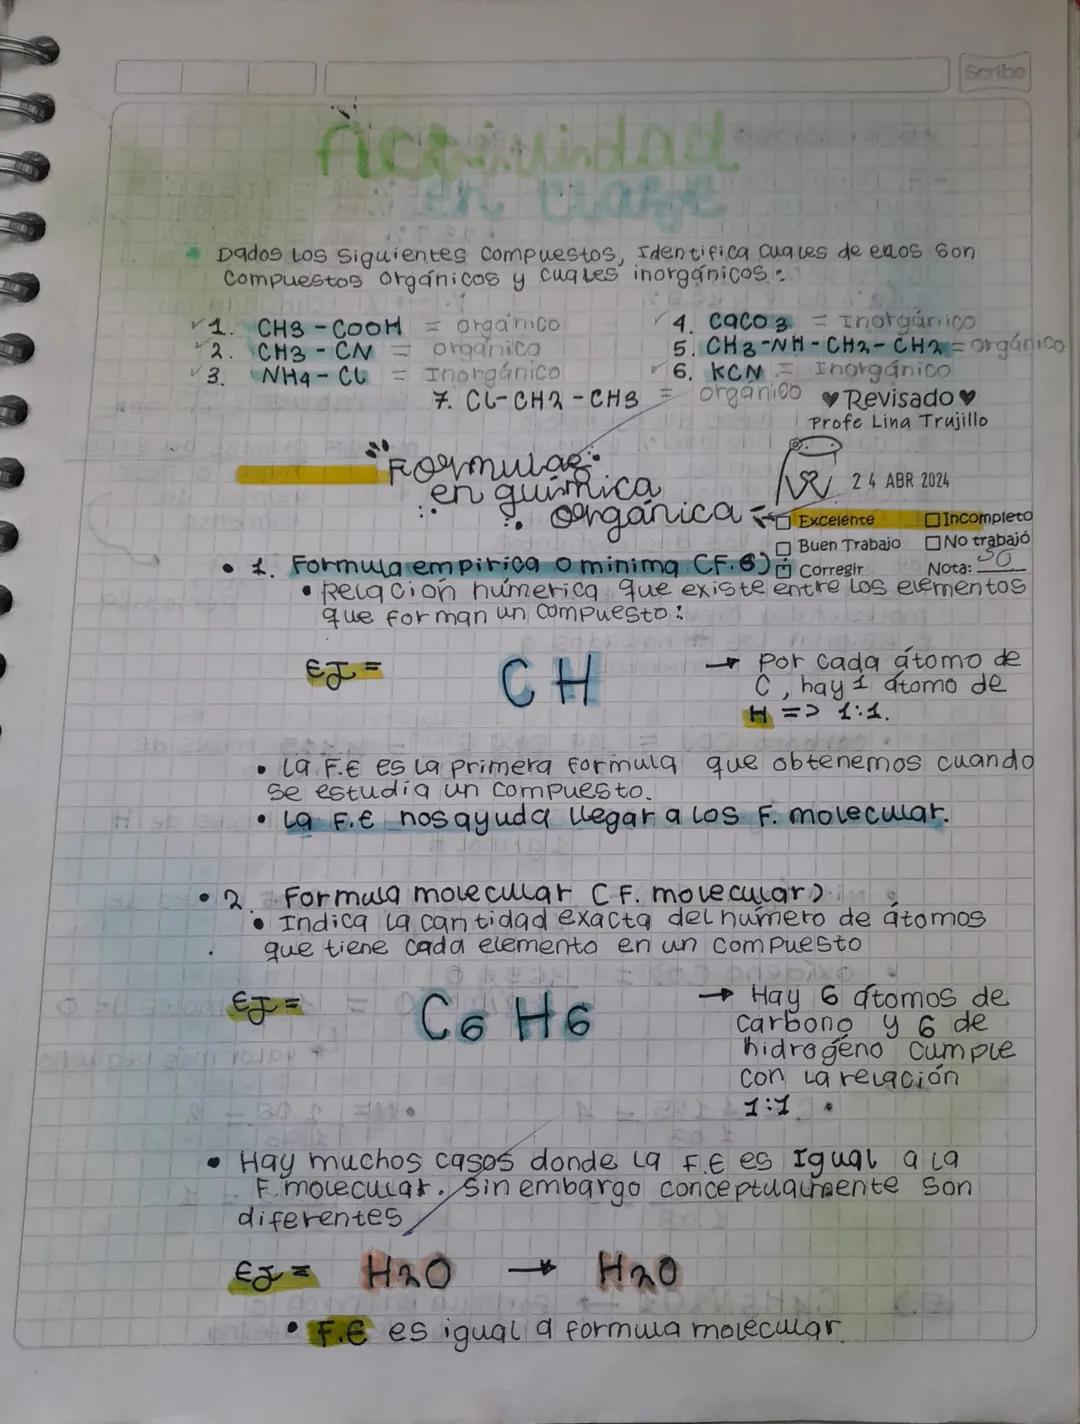 Scribe
Actividad
en clase
• Dados los siguientes compuestos, Identifica cuales de ellos son
compuestos orgánicos y cuales inorgánicos:
✓1. CH3 - COOH = orgánico
✓2. CH3 - CN = orgánico
✓3. NH4 - CL = Inorgánico
✓4. CaCO3 = Inorgánico
5. CH3 -NH - CH2 - CH2 = orgánico
✓6. KCN = Inorgánico
7. CL-CH2 - CH3 = orgánico
♥ Revisado ♥
Profe Lina Trujillo
24 ABR 2024
□ Excelente □ Incompleto
□ Buen Trabajo □ No trabajó
□ Corregir Nota: 50
Formulas
en química
orgánica
• 1. Formula empirica o minima (F.E)
• Relación númerica que existe entre los elementos
que forman un compuesto:
EJ = CH
→ Por cada átomo de
C, hay 1 átomo de
H => 1:1.
• La F.E es la primera formula que obtenemos cuando
se estudia un compuesto.
• La F.E nos ayuda llegar a los F. molecular.
• 2. Formula molecular (F. molecular)
• Indica la cantidad exacta del número de átomos
que tiene cada elemento en un compuesto
EJ = C6 H6
→ Hay 6 átomos de
carbono y 6 de
hidrogéno cumple
con la relación
1:1.
• Hay muchos casos donde la F.E es Igual a la
F. molecular. Sin embargo conceptualmente son
diferentes
EJ = H2O → H2O
• F.E es igual a formula molecular.